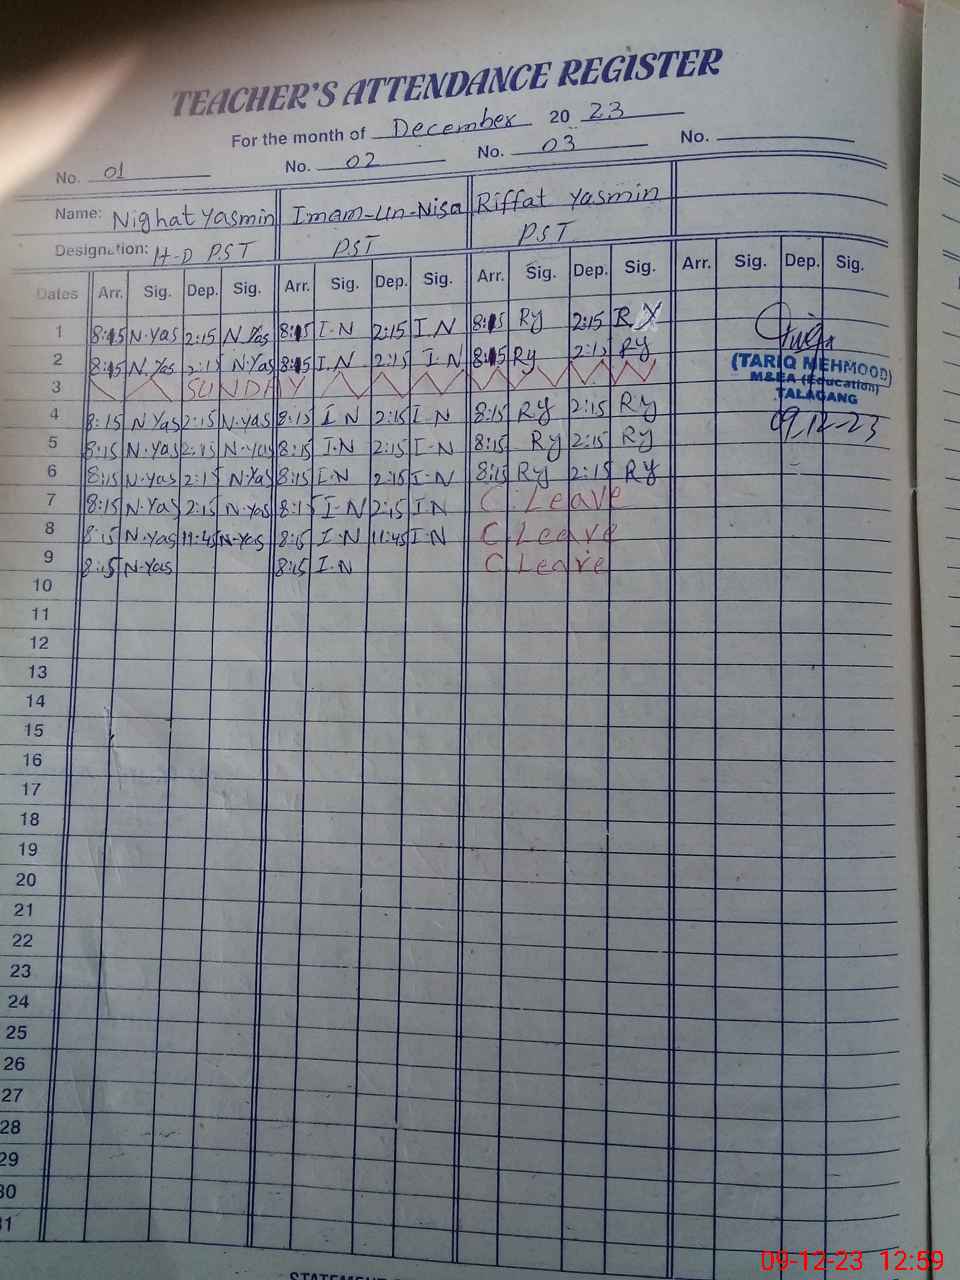 TEACHER'S ATTENDANCE REGISTER
For the month of December 20 23
No. 01 No. 02 No. 03 No.
Name: Nighat Yasmin Imam-un-Nisa Riffat Yasmin
Designation: H-D PST PST PST
Dates Arr. Sig. Dep. Sig. Arr. Sig. Dep. Sig. Arr. Sig. Dep. Sig. Arr. Sig. Dep. Sig.
1 8:15 N.Yas 2:15 N.Yas 8:15 I.N 2:15 I.N 8:15 Ry 2:15 R.Y
2 8:15 N.Yas 2:15 N.Yas 8:15 I.N 2:15 I.N 8:15 Ry 2:15 Ry
(TARIQ MEHMOOD)
3 SUNDAY
M&EA (Education)
TALAGANG
4 8:15 N.Yas 2:15 N.Yas 8:15 I-N 2:15 I-N 8:15 Ry 2:15 Ry
09-12-23
5 8:15 N.Yas 2:15 N.Yas 8:15 I.N 2:15 I-N 8:15 Ry 2:15 Ry
6 8:15 N.Yas 2:15 N.Yas 8:15 I.N 2:15 I-N 8:15 Ry 2:15 Ry
7 8:15 N.Yas 2:15 N.Yas 8:15 I-N 2:15 I.N C.Leave
8 8:15 N.Yas 11:45 N-Yas 8:15 I.N 11:45 I-N C.Leave
9 8:15 N-Yas 8:15 I.N C.Leave
10
11
12
13
14
15
16
17
18
19
20
21
22
23
24
25
26
27
28
29
30
31
09-12-23 12:59